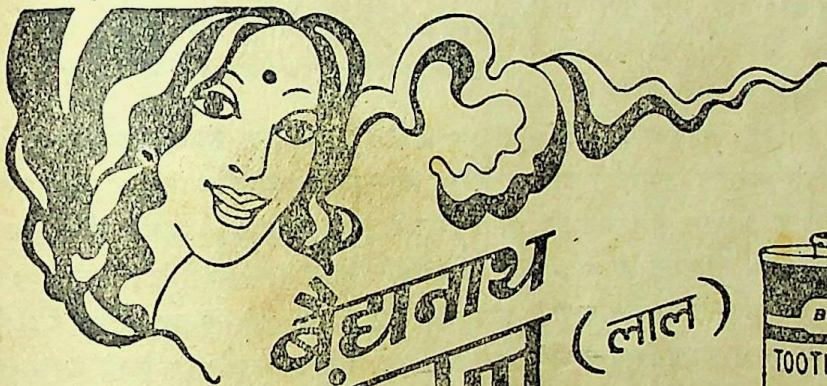 बैद्यनाथ
(लाल)
B
TOOT